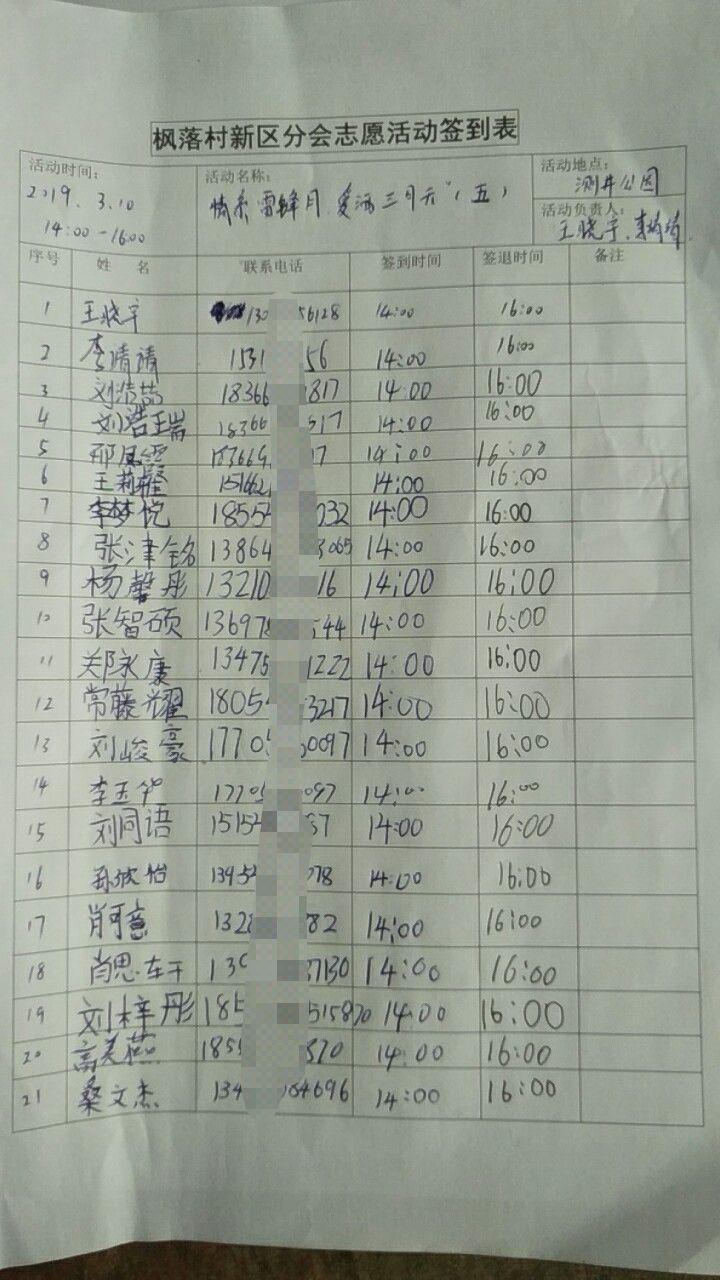 枫落村新区分会志愿活动签到表
活动时间: 2019.3.10 14:00-16:00
活动名称: 情系雷锋月 爱洒三月天"(五)
活动地点: 测井公园
活动负责人: 王晓宇
序号 姓名 联系电话 签到时间 签退时间 备注
1 王晓宇 130 56128 14:00 16:00
2 李清清 1531 56 14:00 16:00
3 刘浩喆 18366 1817 14:00 16:00
4 刘浩瑞 18366 517 14:00 16:00
5 邢凤雪 183669 17 14:00 16:00
6 王莉馨 15162 14:00 16:00
7 李梦悦 18554 032 14:00 16:00
8 张津铭 13864 3065 14:00 16:00
9 杨馨彤 13210 16 14:00 16:00
10 张智硕 13697 544 14:00 16:00
11 郑永康 13475 1222 14:00 16:00
12 常藤耀 18054 3217 14:00 16:00
13 刘峻豪 17705 0097 14:00 16:00
14 李玉华 17705 097 14:00 16:00
15 刘同语 15154 37 14:00 16:00
16 孙欣怡 13954 078 14:00 16:00
17 肖可意 1328 82 14:00 16:00
18 肖思轩 139 37130 14:00 16:00
19 刘梓彤 185 515870 14:00 16:00
20 高美燕 1855 870 14:00 16:00
21 桑文杰 134 84696 14:00 16:00